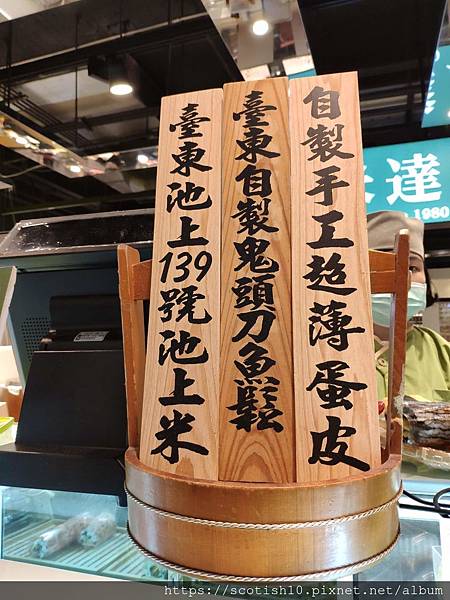 自製手工超薄蛋皮
臺東自製鬼頭刀魚鬆
臺東池上139號池上米
達
1980
https://scotish10.pixnet.net/album